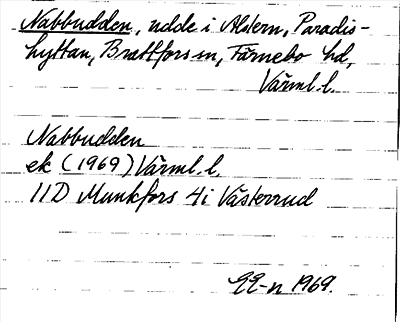 Nabbudden, udde i Alstern, Paradis-
hyttan, Brattfors sn, Färnebo hd,
Värml. l.
Nabbudden
ek (1969) Värml. l.
11D Munkfors 4i Västerrud
EE-n 1969.